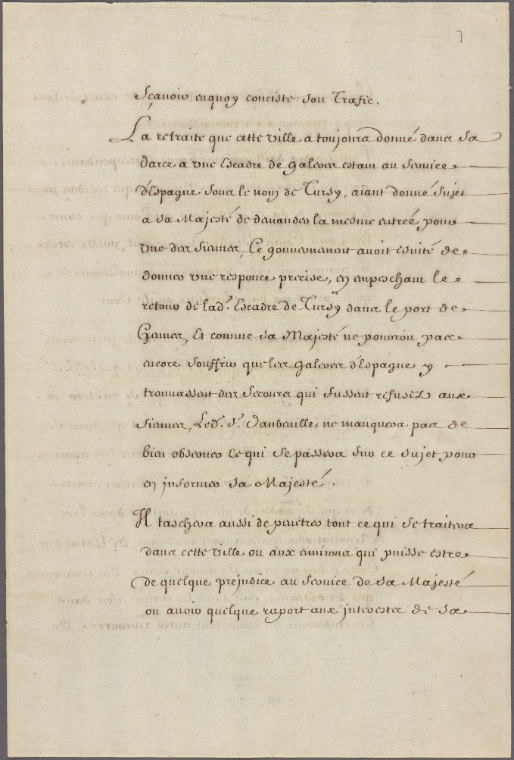 7
Sçavoir enquoy conciste son Trafic.
La retraite que cette ville a toujours donné dans sa
darce a une Escadre de galeres estans au service
d'Espagne sous le nom de Tursy, aiant donné sujet
a sa Majesté de demander la mesme entrée pour
une des siennes, Le gouvernement avoit esvité de
donner une responce precise, en empeschant le
retour de lad.e Escadre de Tursy dans le port de
Gennes, Et comme sa Majesté ne pouroit pas
encore souffrir que les galeres d'Espagne y
trouvassent des secours qui fussent refusez aux
siennes, Led. S.r Daubeville ne manquera pas de
bien observer ce qui se passera sur ce sujet pour
en informer sa Majesté.
Il taschera aussi de penetrer tout ce qui se traitera
dans cette ville ou aux environs qui puisse estre
de quelque prejudice au service de sa Majesté
ou avoir quelque raport aux interestz de sa